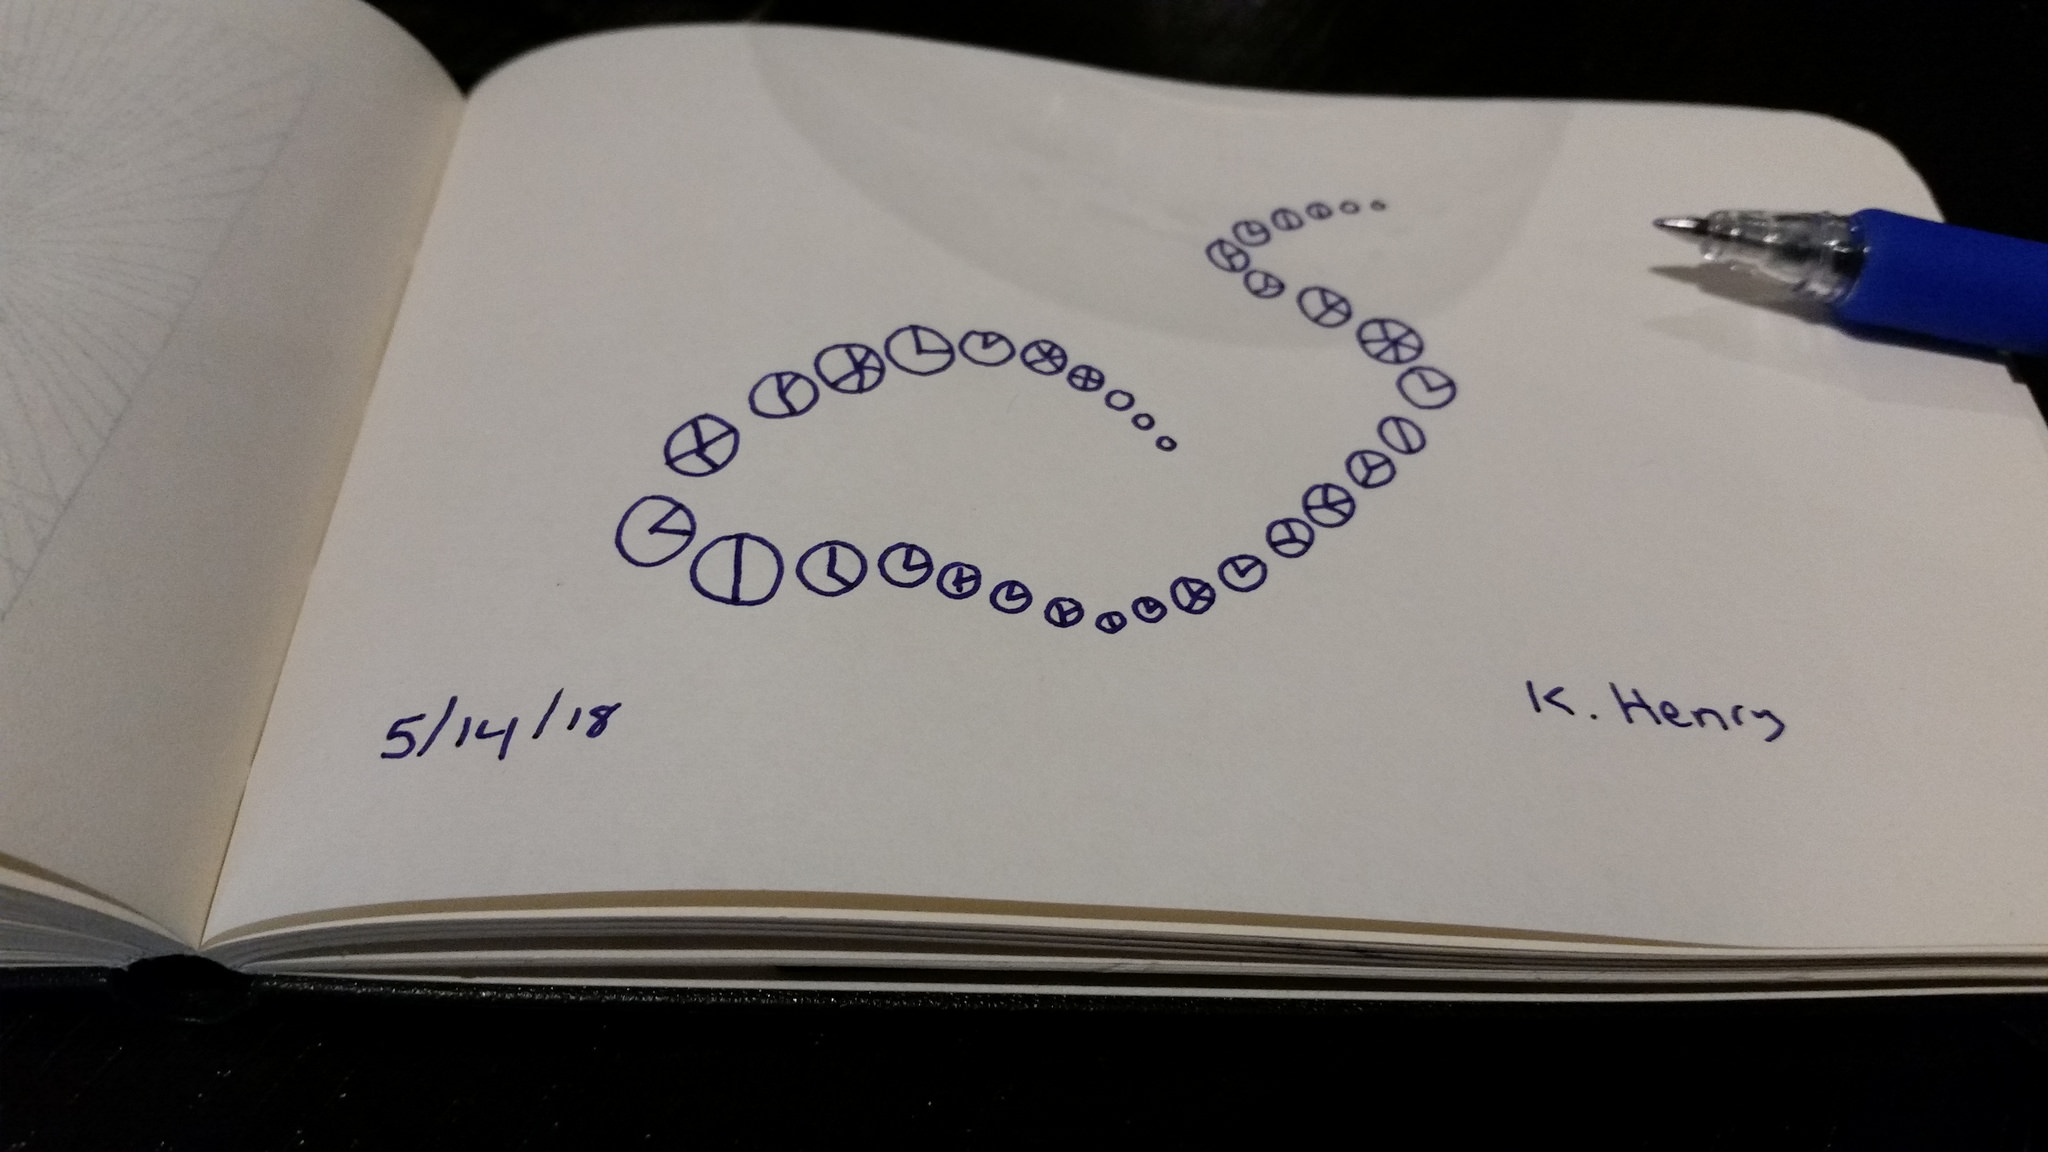 5/14/18
K. Henry